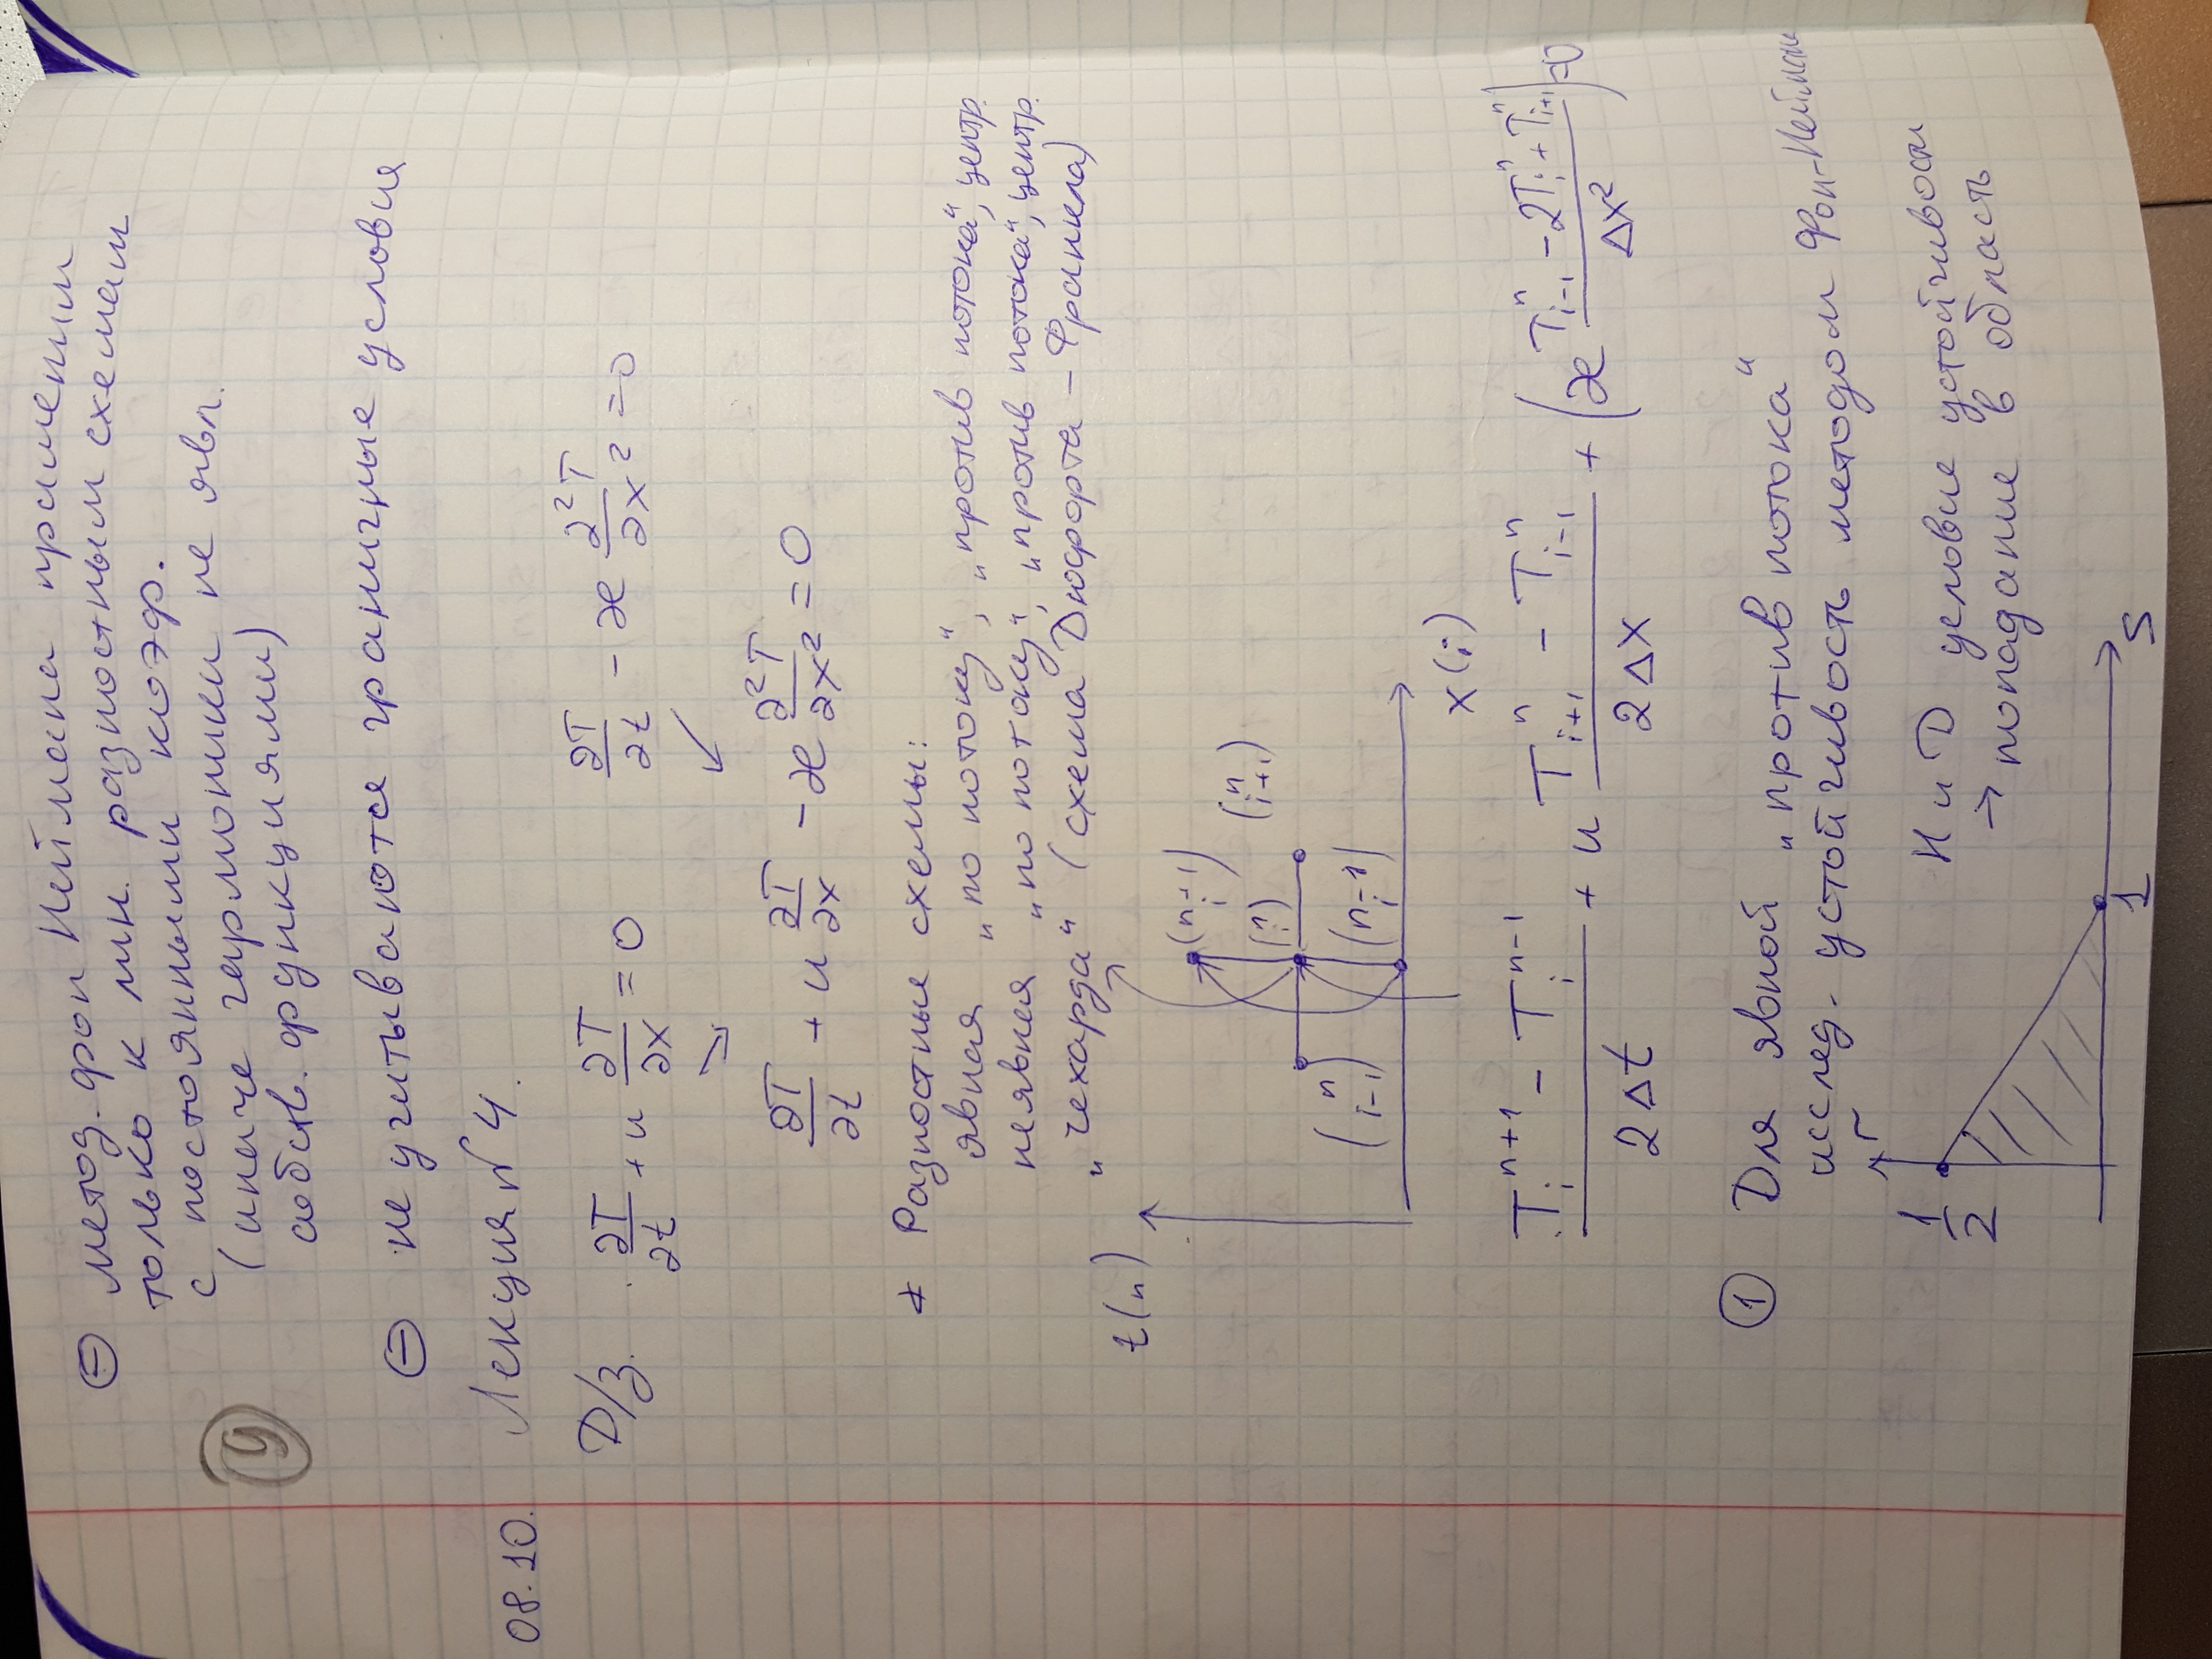 ⊖ метод. фон Неймана применим
только к лин. разностным схемам
с постоянными коэф.
(иначе гармоники не явл.
собств. функциями)
9
⊖ не учитываются граничные условия
08.10. Лекция N 4.
Д/з. ∂T/∂t + u ∂T/∂x = 0 ∂T/∂t - æ ∂²T/∂x² = 0
↘ ↙
∂T/∂t + u ∂T/∂x - æ ∂²T/∂x² = 0
* Разностные схемы:
явная „по потоку“, „против потока“, центр.
неявная „по потоку“, „против потока“, центр.
„чехарда“ (схема Дюфорта – Франкла)
t(n)
(n+1 i)
(n i) (n i+1)
(n i-1) (n-1 i)
x(i)
(T_i^{n+1} - T_i^{n-1})/(2Δt) + u (T_{i+1}^n - T_{i-1}^n)/(2Δx) + (æ (T_{i-1}^n - 2T_i^n + T_{i+1}^n)/Δx²) = 0
① Для явной „против потока“
исслед. устойчивость методом Фон-Неймана
r
1/2
Н и Д условие устойчивости
→ попадание в область
1 S